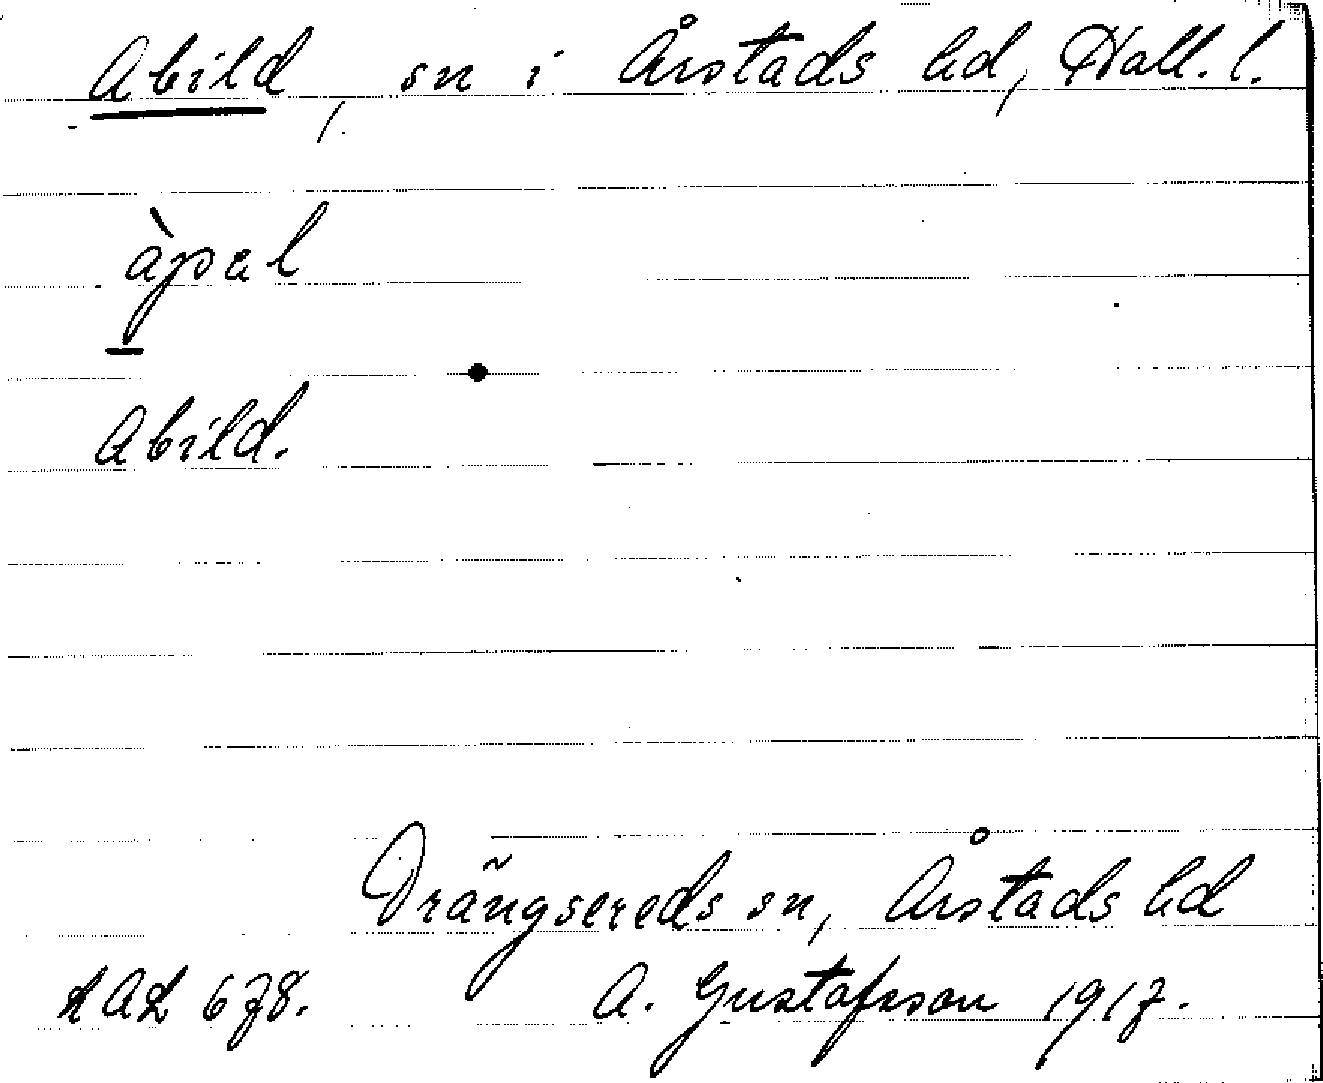 Abild, sn i Årstads hd, Hall. l.
àpal
Abild.
Drängsereds sn, Årstads hd
LAL 678. A. Gustafsson 1917.